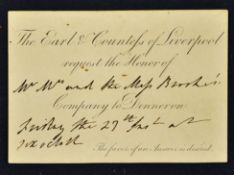 The Earl & Countess of Liverpool
request the Honor of
Mr Mrs and the Miss Brookes
Company to Dinner on
Friday the 29th Inst at
six oClock
The favor of an Answer is desired.